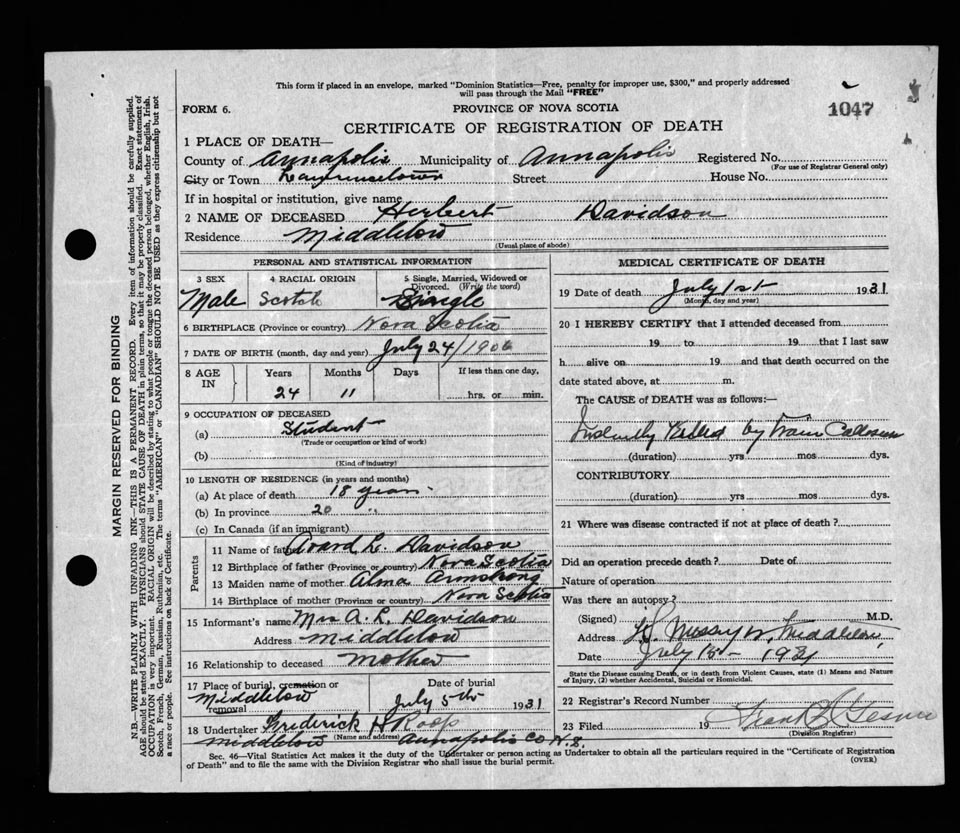 This form if placed in an envelope, marked "Dominion Statistics—Free, penalty for improper use, $300," and properly addressed
will pass through the Mail "FREE"
FORM 6.
PROVINCE OF NOVA SCOTIA
1047
CERTIFICATE OF REGISTRATION OF DEATH
1 PLACE OF DEATH—
County of Annapolis Municipality of Annapolis Registered No.
(For use of Registrar General only)
City or Town Lawrencetown Street House No.
If in hospital or institution, give name
2 NAME OF DECEASED Herbert Davidson
Residence Middleton
(Usual place of abode)
PERSONAL AND STATISTICAL INFORMATION
3 SEX 4 RACIAL ORIGIN 5 Single, Married, Widowed or Divorced. (Write the word)
Male Scotch Single
6 BIRTHPLACE (Province or country) Nova Scotia
7 DATE OF BIRTH (month, day and year) July 24/1906
8 AGE IN Years Months Days If less than one day,
24 11 hrs. or min.
9 OCCUPATION OF DECEASED
(a) Student
(Trade or occupation or kind of work)
(b)
(Kind of industry)
10 LENGTH OF RESIDENCE (in years and months)
(a) At place of death 18 years
(b) In province 20 "
(c) In Canada (if an immigrant)
Parents
11 Name of father Avard L. Davidson
12 Birthplace of father (Province or country) Nova Scotia
13 Maiden name of mother Alma Armstrong
14 Birthplace of mother (Province or country) Nova Scotia
15 Informant's name Mrs A. L. Davidson
Address Middleton
16 Relationship to deceased Mother
17 Place of burial, cremation or removal Date of burial
Middleton July 5th 1931
18 Undertaker Frederick H Roop
(Name and address)
Middleton Annapolis Co N.S.
MEDICAL CERTIFICATE OF DEATH
19 Date of death July 1st 1931
(Month, day and year)
20 I HEREBY CERTIFY that I attended deceased from
19 to 19 that I last saw
h alive on 19 and that death occurred on the
date stated above, at m.
The CAUSE of DEATH was as follows:—
Instantly Killed by Train
(duration) yrs mos dys.
CONTRIBUTORY
(duration) yrs mos dys.
21 Where was disease contracted if not at place of death?
Did an operation precede death? Date of
Nature of operation
Was there an autopsy?
(Signed) M.D.
Address Middleton
Date July 15- 1931
State the Disease causing Death, or in death from Violent Causes, state (1) Means and Nature
of Injury, (2) whether Accidental, Suicidal or Homicidal.
22 Registrar's Record Number
23 Filed 19
(Division Registrar)
Sec. 46—Vital Statistics Act makes it the duty of the Undertaker or person acting as Undertaker to obtain all the particulars required in the "Certificate of Registration
of Death" and to file the same with the Division Registrar who shall issue the burial permit.
(OVER)
MARGIN RESERVED FOR BINDING
N.B.—WRITE PLAINLY WITH UNFADING INK—THIS IS A PERMANENT RECORD. Every item of information should be carefully supplied.
AGE should be stated EXACTLY. PHYSICIANS should STATE CAUSE OF DEATH in plain terms, so that it may be properly classified. Exact statement of
OCCUPATION is very important. RACIAL ORIGIN will be described by stating to what people or tongue the deceased person belonged, whether English, Irish,
Scotch, French, German, Russian, Ruthenian, etc. The terms "AMERICAN" or "CANADIAN" SHOULD NOT BE USED as they express citizenship but not
a race or people. See instructions on back of Certificate.